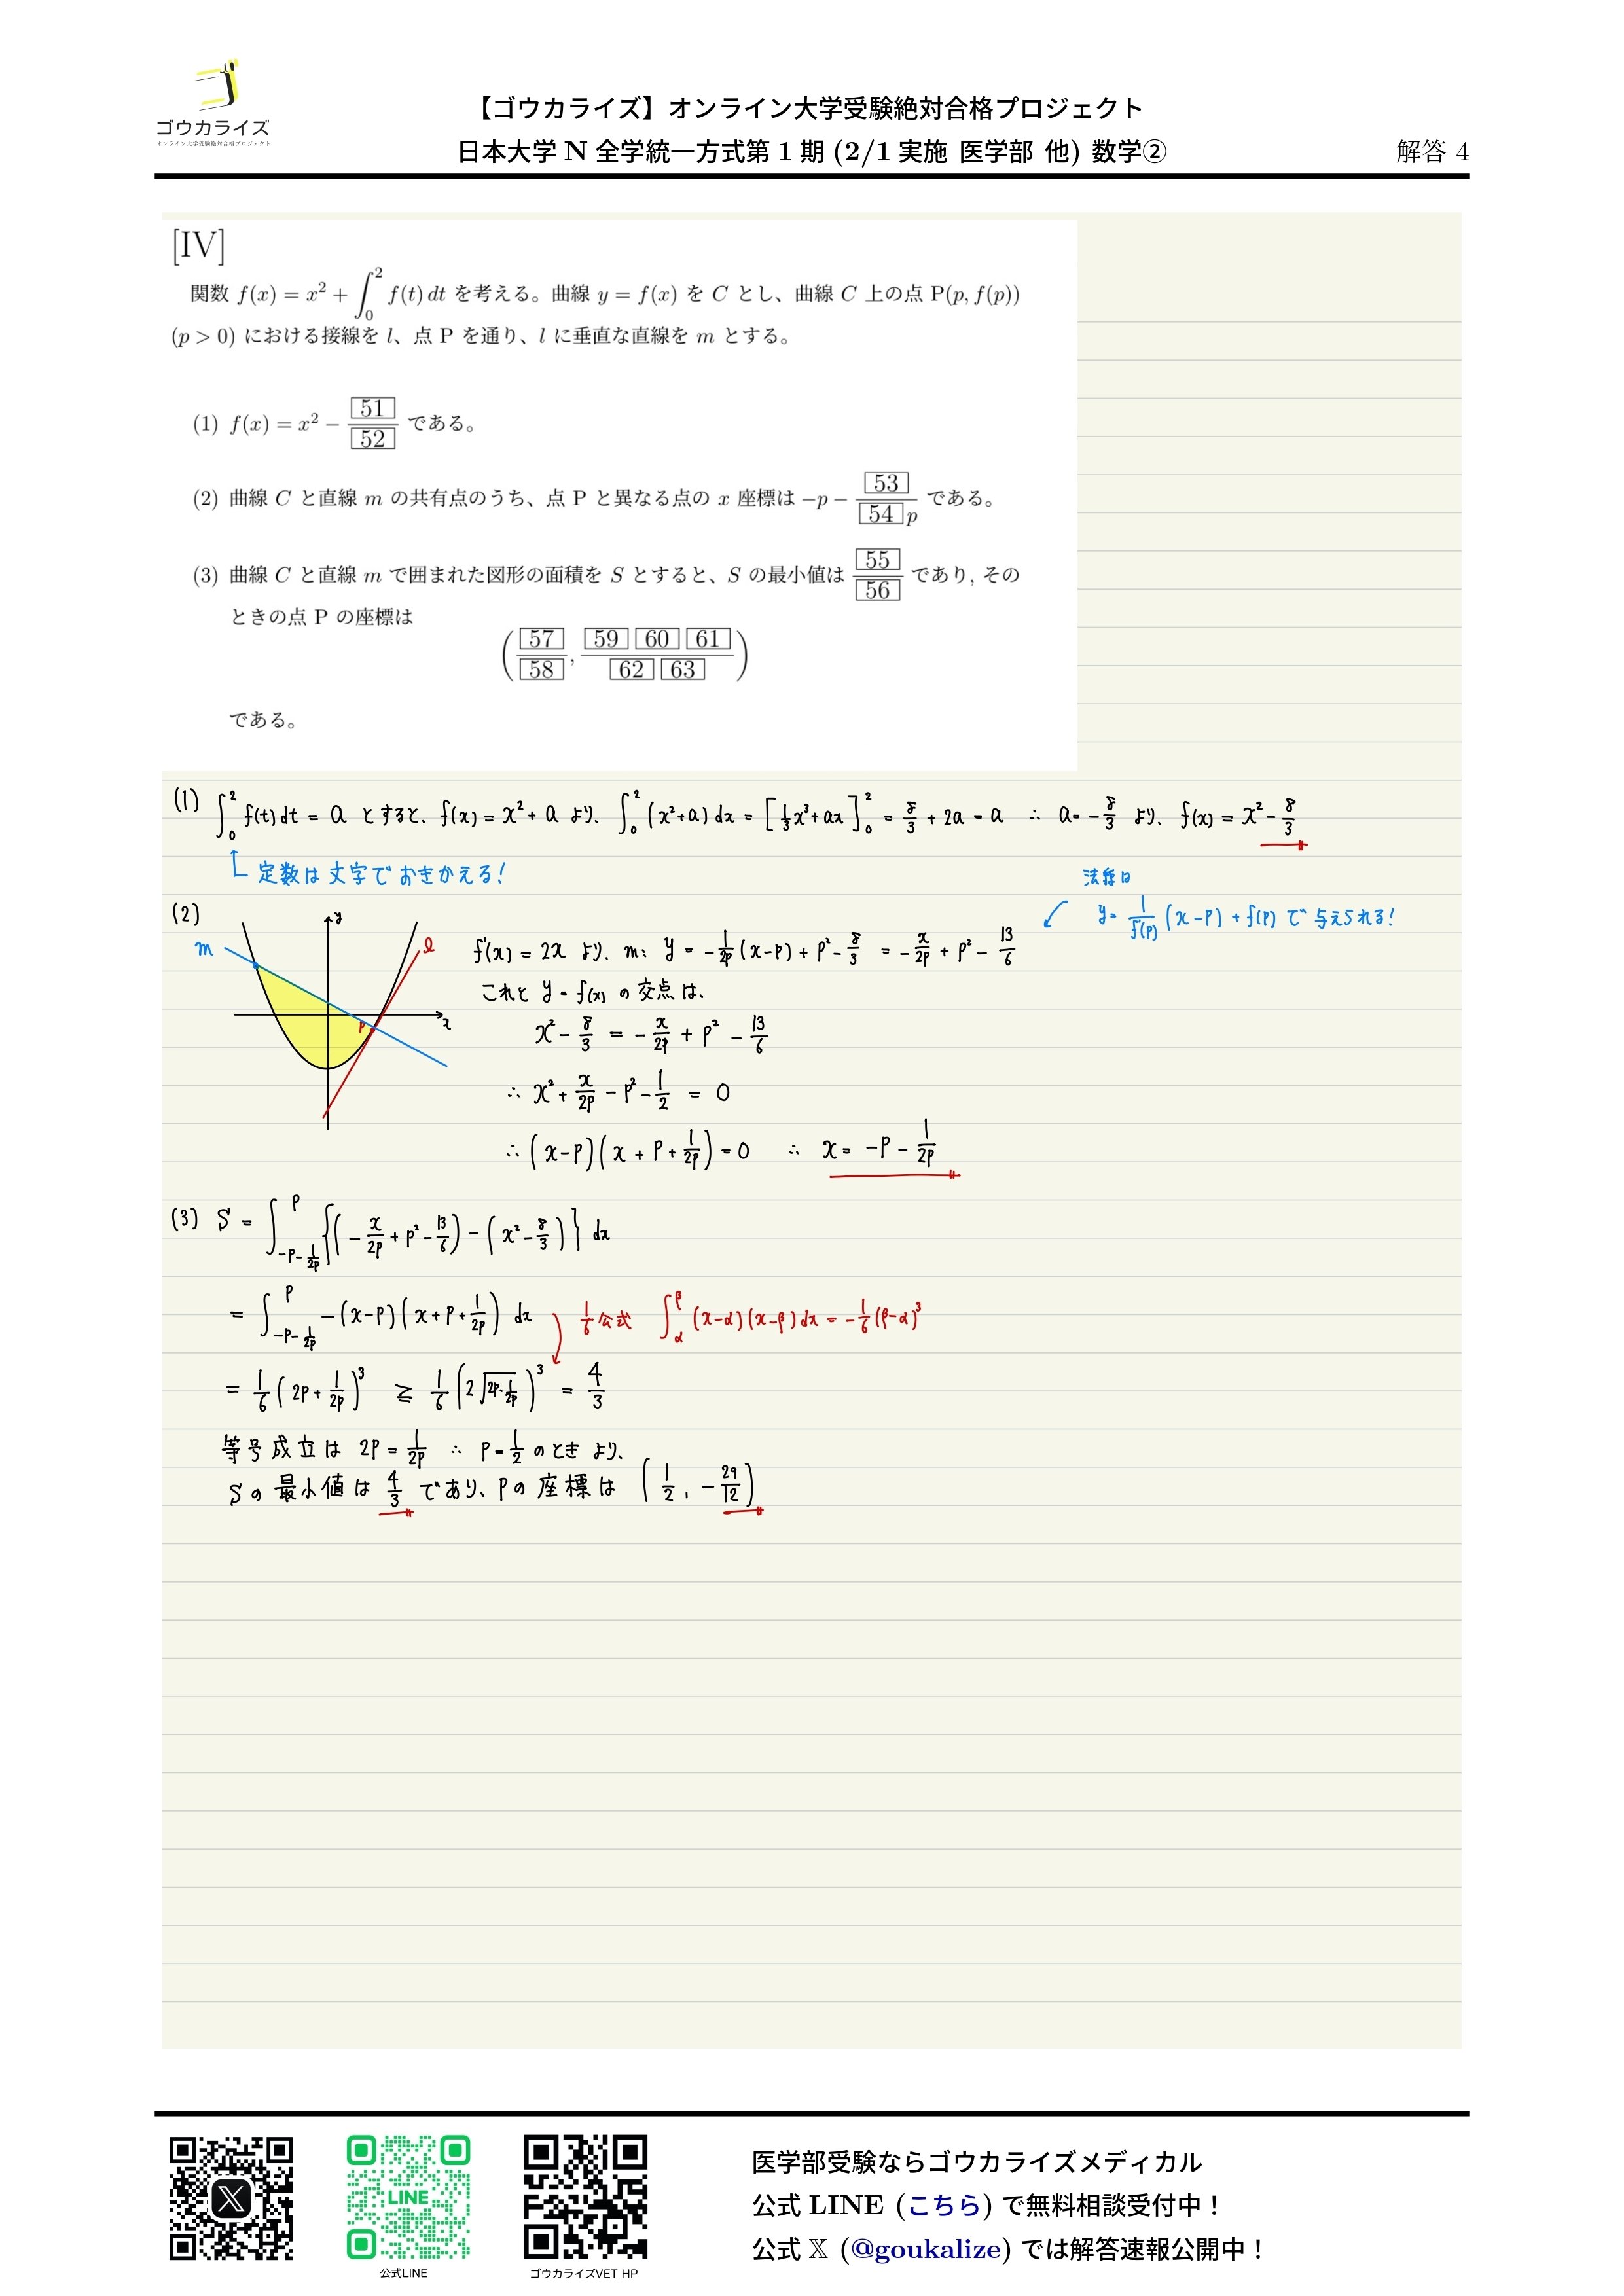 ゴウカライズ
オンライン大学受験絶対合格プロジェクト
【ゴウカライズ】オンライン大学受験絶対合格プロジェクト
日本大学 N 全学統一方式第 1 期 (2/1 実施 医学部 他) 数学②
解答 4
[IV]
関数 f(x) = x² + ∫₀² f(t) dt を考える。曲線 y = f(x) を C とし、曲線 C 上の点 P(p, f(p))
(p > 0) における接線を l、点 P を通り、l に垂直な直線を m とする。
(1) f(x) = x² − 51/52 である。
(2) 曲線 C と直線 m の共有点のうち、点 P と異なる点の x 座標は −p − 53/54p である。
(3) 曲線 C と直線 m で囲まれた図形の面積を S とすると、S の最小値は 55/56 であり, その
ときの点 P の座標は
(57/58, 59 60 61/62 63)
である。
(1) ∫₀² f(t) dt = a とすると、f(x) = x² + a より、∫₀² (x²+a) dx = [1/3 x³ + ax]₀² = 8/3 + 2a = a ∴ a = −8/3 より、f(x) = x² − 8/3
定数は文字でおきかえる!
法線は
y = 1/f'(p) (x−p) + f(p) で与えられる!
(2)
y
m
l
P
x
f'(x) = 2x より、m: y = −1/2p (x−p) + p² − 8/3 = −x/2p + p² − 13/6
これと y = f(x) の交点は、
x² − 8/3 = −x/2p + p² − 13/6
∴ x² + x/2p − p² − 1/2 = 0
∴ (x−p)(x + p + 1/2p) = 0 ∴ x = −p − 1/2p
(3) S = ∫_{−p−1/2p}^{p} {(−x/2p + p² − 13/6) − (x² − 8/3)} dx
= ∫_{−p−1/2p}^{p} −(x−p)(x+p+1/2p) dx
1/6公式 ∫_α^β (x−α)(x−β) dx = −1/6 (β−α)³
= 1/6 (2p + 1/2p)³ ≧ 1/6 (2√(2p·1/2p))³ = 4/3
等号成立は 2p = 1/2p ∴ p = 1/2 のときより、
Sの最小値は 4/3 であり、Pの座標は (1/2, −29/12)
LINE
公式LINE
ゴウカライズVET HP
医学部受験ならゴウカライズメディカル
公式 LINE (こちら) で無料相談受付中！
公式 𝕏 (@goukalize) では解答速報公開中！